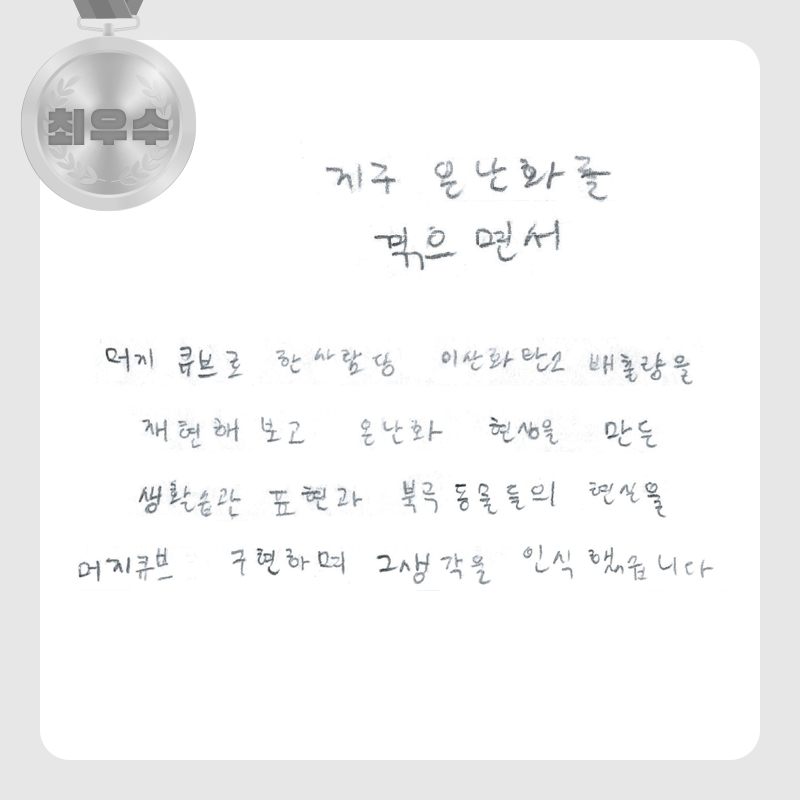 최우수
지구 온난화를
겪으면서
머지 큐브로 한사람당 이산화탄소 배출량을
재현해 보고 온난화 현상을 만든
생활습관 표현과 북극 동물들의 현실을
머지큐브 구현하며 그생각을 인식 했습니다